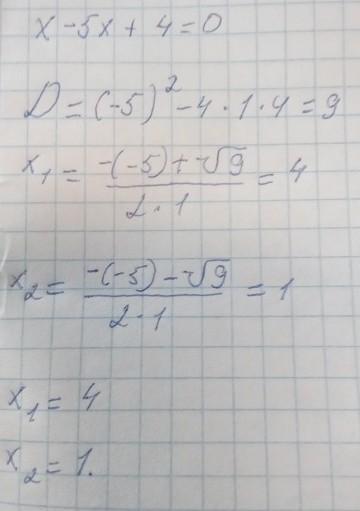 x - 5x + 4 = 0
D = (-5)² - 4 · 1 · 4 = 9
x₁ = (-(-5) + √9) / (2 · 1) = 4
x₂ = (-(-5) - √9) / (2 · 1) = 1
x₁ = 4
x₂ = 1.